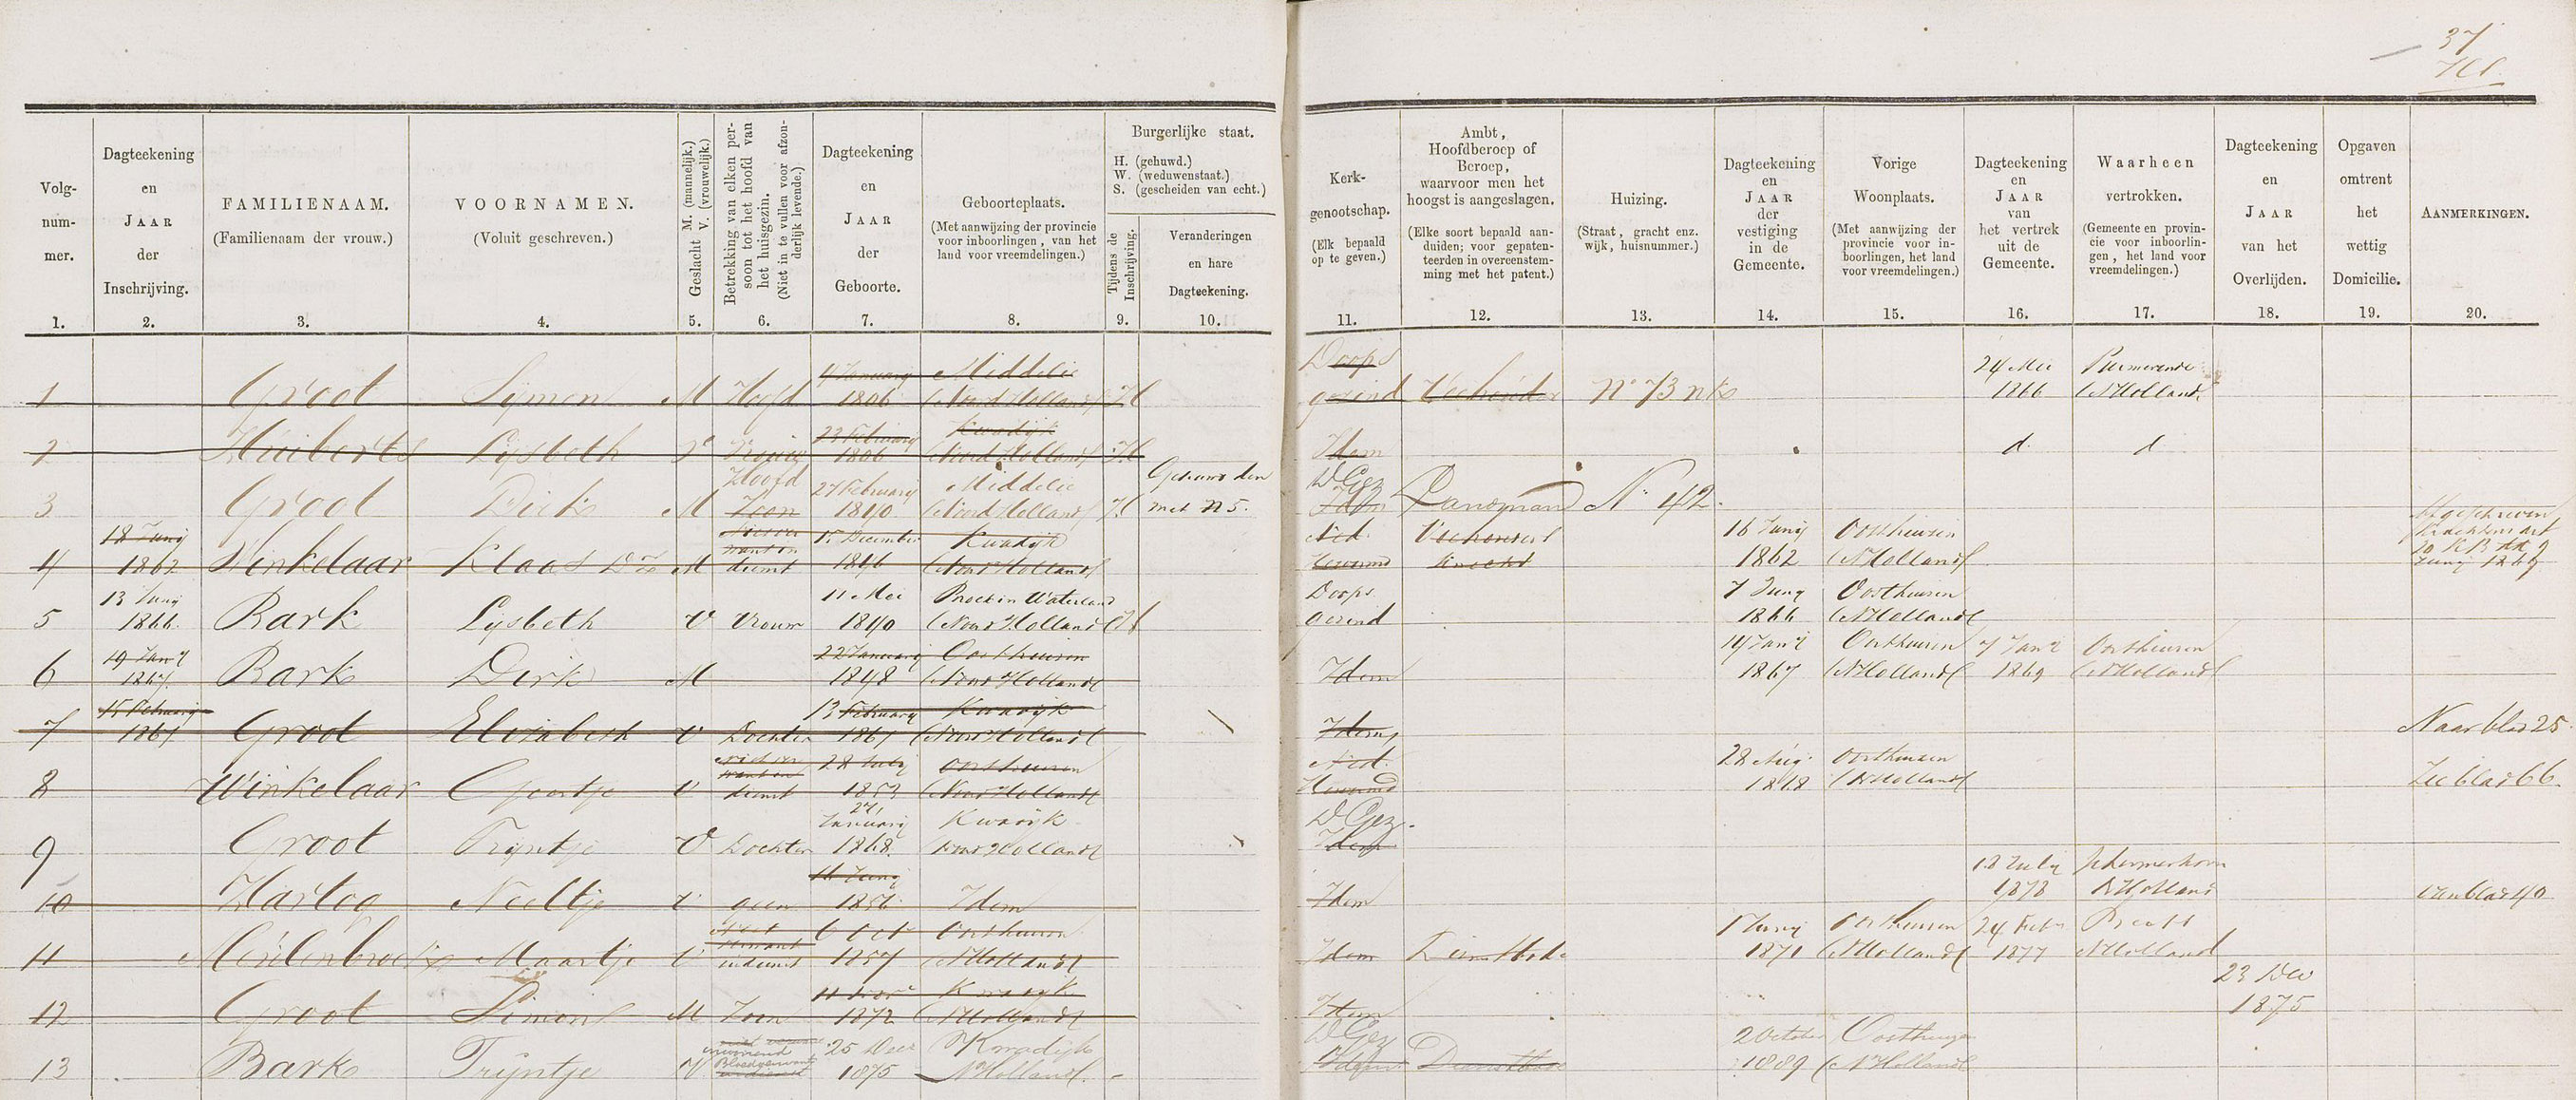 37
Volg-
num-
mer.
1.
Dagteekening
en
JAAR
der
Inschrijving.
2.
FAMILIENAAM.
(Familienaam der vrouw.)
3.
VOORNAMEN.
(Voluit geschreven.)
4.
Geslacht M. (mannelijk.)
V. (vrouwelijk.)
5.
Betrekking van elken per-
soon tot het hoofd van
het huisgezin.
(Niet in te vullen voor afzon-
derlijk levende.)
6.
Dagteekening
en
JAAR
der
Geboorte.
7.
Geboorteplaats.
(Met aanwijzing der provincie
voor inboorlingen, van het
land voor vreemdelingen.)
8.
Burgerlijke staat.
H. (gehuwd.)
W. (weduwenstaat.)
S. (gescheiden van echt.)
Tijdens de
Inschrijving.
9.
Veranderingen
en hare
Dagteekening.
10.
Kerk-
genootschap.
(Elk bepaald
op te geven.)
11.
Ambt,
Hoofdberoep of
Beroep,
waarvoor men het
hoogst is aangeslagen.
(Elke soort bepaald aan-
duiden; voor gepaten-
teerden in overeenstem-
ming met het patent.)
12.
Huizing.
(Straat, gracht enz.
wijk, huisnummer.)
13.
Dagteekening
en
JAAR
der
vestiging
in de
Gemeente.
14.
Vorige
Woonplaats.
(Met aanwijzing der
provincie voor in-
boorlingen, het land
voor vreemdelingen.)
15.
Dagteekening
en
JAAR
van
het vertrek
uit de
Gemeente.
16.
Waarheen
vertrokken.
(Gemeente en provin-
cie voor inboorlin-
gen, het land voor
vreemdelingen.)
17.
Dagteekening
en
JAAR
van het
Overlijden.
18.
Opgaven
omtrent
het
wettig
Domicilie.
19.
AANMERKINGEN.
20.
4 January Middelie Doops 24 Mei Purmerende
1 Groot Sijmon M Hoofd 1806 (Noord Holland) H gezind Veehouder No 73 1866 (NHolland)
23 February Kwadijk
2 Huiberts Lijsbeth V Vrouw 1806 (Noord Holland) H Idem d d
Hoofd 27 February Middelie Gehuwd den D Gez
3 Groot Dirk M Zoon 1840 (Noord Holland) H met N 5. Idem Landman N. 42.
18 Junij 15 December Kwadijk Ned. Veehouders 16 Junij Oosthuizen
4 1862 Winkelaar Klaas Dz M dienst 1846 (Noord Holland) Hervormd knecht 1862 (NHolland) Junij 1869
13 Junij 11 Mei Broek in Waterland Doops 7 Junij Oosthuizen
5 1866. Bark Lijsbeth V Vrouw 1840 (Noord Holland) H Gezind 1866 (NHolland)
19 Jany 22 Januarij Oosthuizen 14 Jany Oosthuizen 7 Jany Oosthuizen
6 1867. Bark Dirk M 1848 (Noord Holland) Idem 1867 (NHolland) 1869 (NHolland)
15 Februarij 13 February Kwadijk
7 1867 Groot Elizabeth V Dochter 1867 (Noord Holland) Idem Naar blad 25.
28 July Oosthuizen Ned. 28 Aug. Oosthuizen
8 Winkelaar Geertje V dienst 1853 (Noord Holland) Hervormd 1868 (NHolland) Zie blad 66.
27 Januarij Kwadijk D Gez.
9 Groot Trijntje V Dochter 1868. Noord Holland Idem
14 Junij 18 July Schermerhorn
10 Hartog Neeltje V geen 1856 Idem Idem 1878 NHolland van blad 40
6 Octr Oosthuizen 1 Junij Oosthuizen 24 Febr
11 Meulenbroek Maartje V in dienst 1857 (NHolland) Idem Dienstbode 1871 (NHolland) 1877 NHolland
11 Novr Kwadijk 23 Dec
12 Groot Simon M Zoon 1872 (NHolland) Idem 1875
inwonend 25 Decr Kwadijk D Gez 2 October Oosthuizen
13 Bark Trijntje V Bloedverwant 1875 NHolland. Idem Dienstbode 1889 (NHolland)